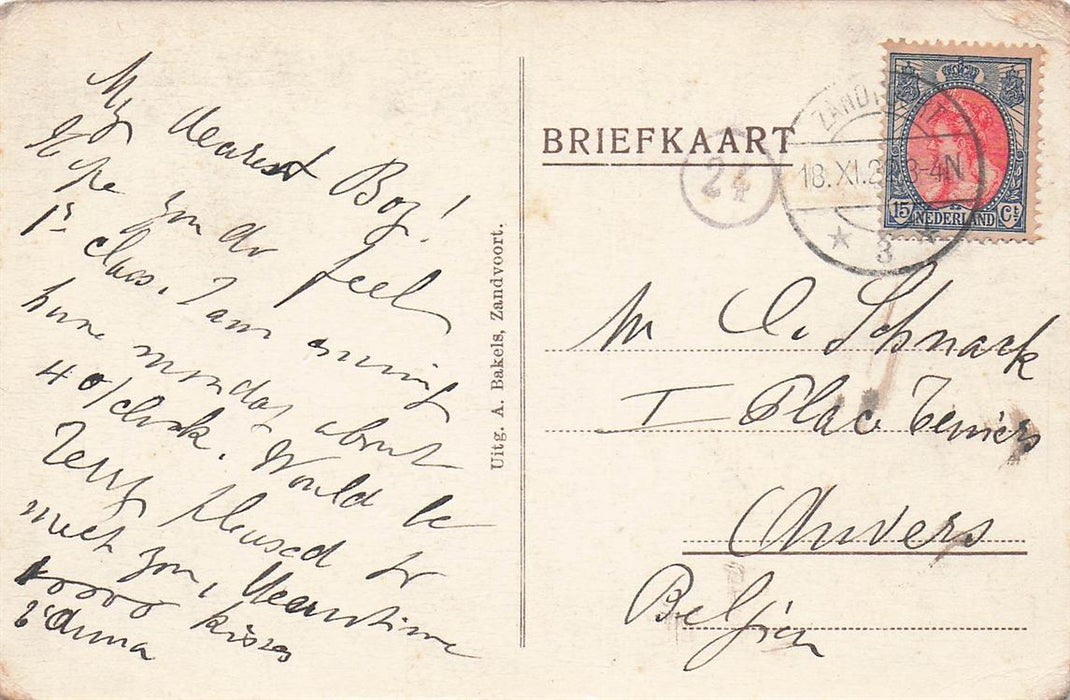 My dearest Boy!
Hope you do feel
1st class. I am coming
home monday about
4 o/clock. Would be
very pleased to
meet you, Meanwhile
10000 kisses
Anna
Uitg. A. Bakels, Zandvoort.
BRIEFKAART
24
ZANDVOORT
18.XI.22 3-4N
3
15 NEDERLAND Ct
M C. Schnack
I Place Teniers
Anvers
Belgien